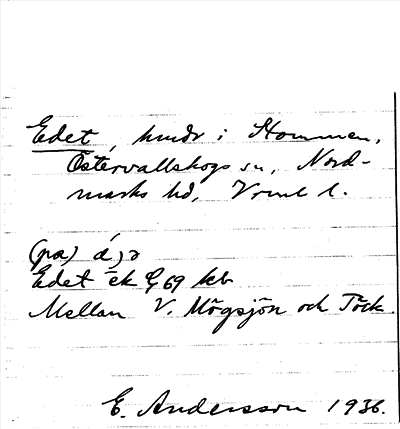 Edet, hmdr i Hommen,
Östervallskogs sn, Nord-
marks hd, Vrml l.
(pa) á,ə
Edet ek G 69 kb
Mellan V. Mögsjön och Töck.
E. Andersson 1936.